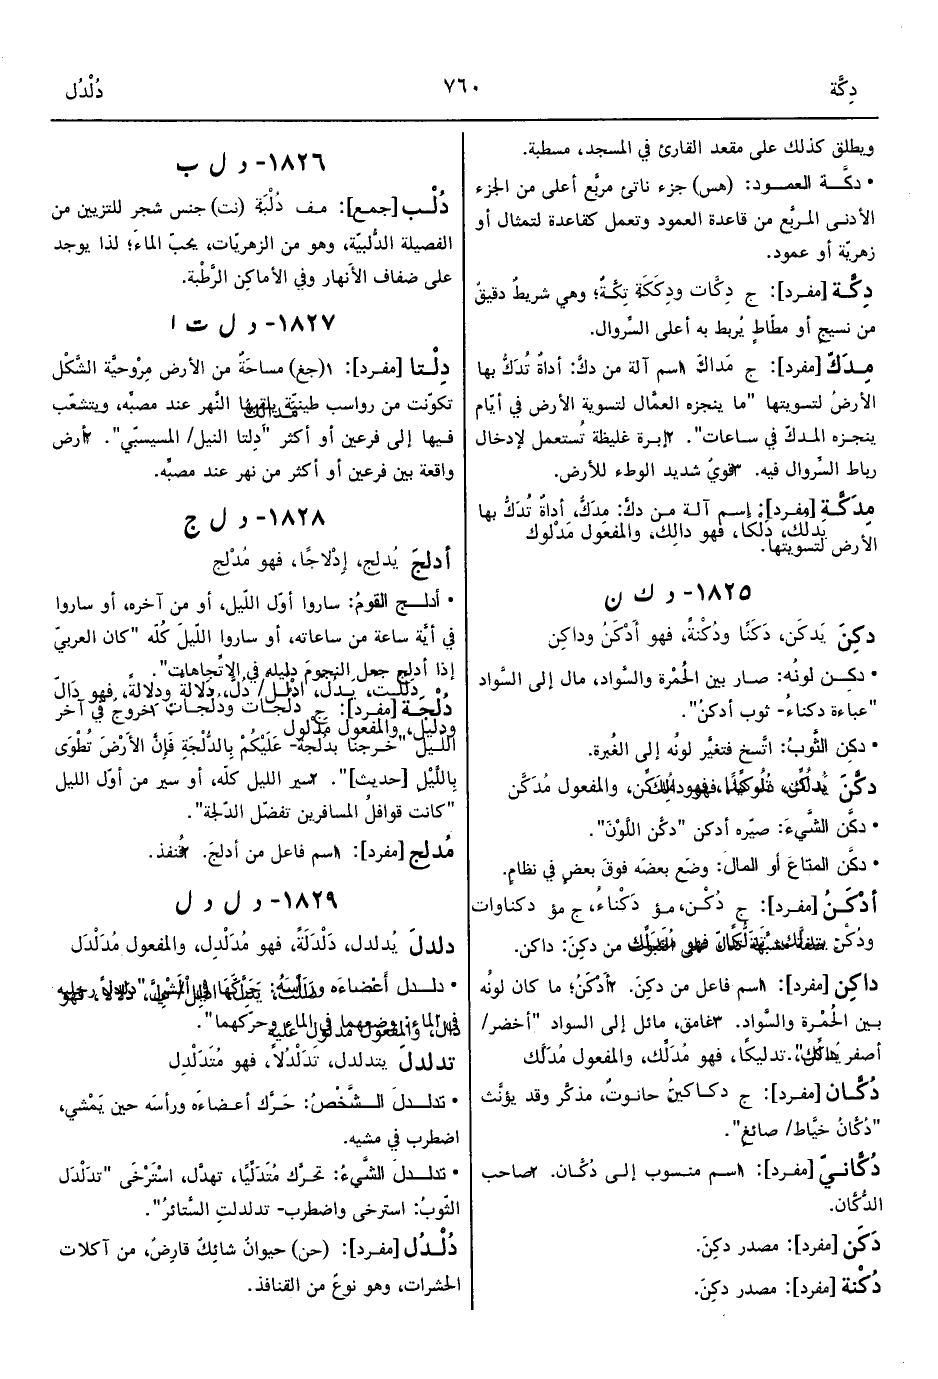 دِكَّة
٧٦٠
دُلْدُل
ويطلق كذلك على مقعد القارئ في المسجد، مسطبة.
• دكَّـة العمـود: (هس) جزء ناتئ مربَّع أعلى من الجزء
الأدنـى المـربَّع من قاعدة العمود وتعمل كقاعدة لتمثال أو
زهريّة أو عمود.
دِكَّـة [مفـرد]: ج دِكَّات ودِكَكَة تِكَّةٌ؛ وهي شريطٌ دقيقٌ
من نسيج أو مطّاطٍ يُربط به أعلى السِّروال.
مِـدَكّ [مفـرد]: ج مَداكّ ١اسم آلة من دكَّ: أداةٌ تُدَكُّ بها
الأرضُ لتسويتها "ما ينجزه العمّال لتسوية الأرض في أيّام
ينجـزه المـدكّ في ساعات". ٢إبرة غليظة تُستعمل لإدخال
رباط السِّروال فيه. ٣قويٌ شديد الوطء للأرض.
مِدَكَّـة [مفـرد]: إسـم آلـة مـن دكَّ: مِدَكُّ، أداةٌ تُدَكُّ بها
يدلك، دَلكا، فهو دالك، والمفعول مَدْلوك
الأرض لتسويتها.
١٨٢٥- د ك ن
دكِنَ يَدكَن، دَكَنًا ودُكْنةً، فهو أَدْكَنُ وداكِن
• دكـِن لونُه: صـار بين الحُمْرة والسَّواد، مال إلى السَّواد
"عباءة دكناءُ- ثوب أدكنُ".
• دكن الثَّوبُ: اتَّسخ فتغيَّر لونُه إلى الغُبرة.
دكَّنَ فهو والمفعول مُدَكَّن
• دكَّن الشَّيءَ: صيّره أدكن "دكّن اللَّوْنَ".
• دكَّن المتاعَ أو المالَ: وضَع بعضَه فوقَ بعضٍ في نظامٍ.
أدْكَـنُ [مفـرد]: ج دُكْـن، مـؤ دَكْنـاءُ، ج مؤ دكناوات
ودُكْن من دكِنَ: داكِن.
داكِن [مفرد]: ١اسم فاعل من دكِنَ. ٢أدْكَنُ؛ ما كان لونُه
بـين الحُمْـرة والسَّواد. ٣غامق، مائل إلى السواد "أخضر/
أصفر تدليكًا، فهو مُدَلِّك، والمفعول مُدَلَّك
دُكَّـان [مفـرد]: ج دكـاكينُ حانـوتٌ، مذكّر وقد يؤنَّث
"دُكَّانُ خيَّاط/ صائغ".
دُكَّانـيّ [مفـرد]: ١اسـم منسـوب إلـى دُكَّـان. ٢صاحب
الدُّكَّان.
دَكَن [مفرد]: مصدر دكِنَ.
دُكْنة [مفرد]: مصدر دكِنَ.
١٨٢٦- د ل ب
دُلْـب [جمـع]: مـف دُلْبَة (نت) جنس شجر للتزيين من
الفصيلة الدُّلبيّة، وهو من الزهريّات، يحبّ الماءَ؛ لذا يوجد
على ضفاف الأنهار وفي الأماكن الرَّطْبة.
١٨٢٧- د ل ت ا
دِلْـتا [مفـرد]: ١(جغ) مساحةٌ من الأرض مِرْوحيَّة الشَّكْل
تكوّنت من رواسب طينيَّة النَّهر عند مصبِّه، ويتشعّب
فـيها إلى فرعين أو أكثر "دِلتا النيل/ المسيسبّي". ٢أرض
واقعة بين فرعين أو أكثر من نهر عند مصبِّه.
١٨٢٨- د ل ج
أدلجَ يُدلج، إدْلاجًا، فهو مُدْلِج
• أدلـج القومُ: ساروا أوّل اللَّيل، أو من آخره، أو ساروا
في أيَّة ساعة من ساعاته، أو ساروا اللَّيلَ كُلّه "كان العربيّ
إذا أدلج جعل النجومَ دليله في الاتِّجاهات".
يـدُلّ، ادْلُـلْ/ دُلَّ، دَلالة ودِلالة، فهو دَالّ
دُلْجـة [مفرد]: ج دلْجات ودلَجات ١خروج في آخر
ودليل، والمفعول مَدْلول
اللَّيل "خـرجنا بدُلجة- عَلَيْكُم بِالدُّلْجَةِ فَإِنَّ الأَرْضَ تُطْوَى
بِاللَّيْل [حديث]". ٢سير الليل كلّه، أو سير من أوّل الليل
"كانت قوافل المسافرين تفضّل الدّلجة".
مُدلِج [مفرد]: ١اسم فاعل من أدلجَ. ٢قُنفذ.
١٨٢٩- د ل د ل
دلدلَ يُدلدل، دَلْدَلةً، فهو مُدَلْدِل، والمفعول مُدَلْدَل
• دلـدل أعْضـاءَه ورأسَـه: حَرَّكَهَا في الْمَشْي "دلدل رجليه
في الماء: وضعهما في الماء وحرّكهما".
تدلدلَ يتدلدل، تدَلْدُلاً، فهو مُتَدَلْدِل
• تدلـدلَ الـشَّخْصُ: حَـرَّك أعضـاءَه ورأسَه حين يَمْشي،
اضطرب في مشيه.
• تدلـدلَ الشَّيءُ: تحرَّك مُتَدَلِّيًا، تهدَّل، استَرْخَى "تدَلْدَل
الثّوبُ: استرخى واضطرب- تدلدلتِ السَّتائرُ".
دُلْـدُل [مفـرد]: (حن) حيوانٌ شائكٌ قارِضٌ، من آكلات
الحشرات، وهو نوعٌ من القنافذ.